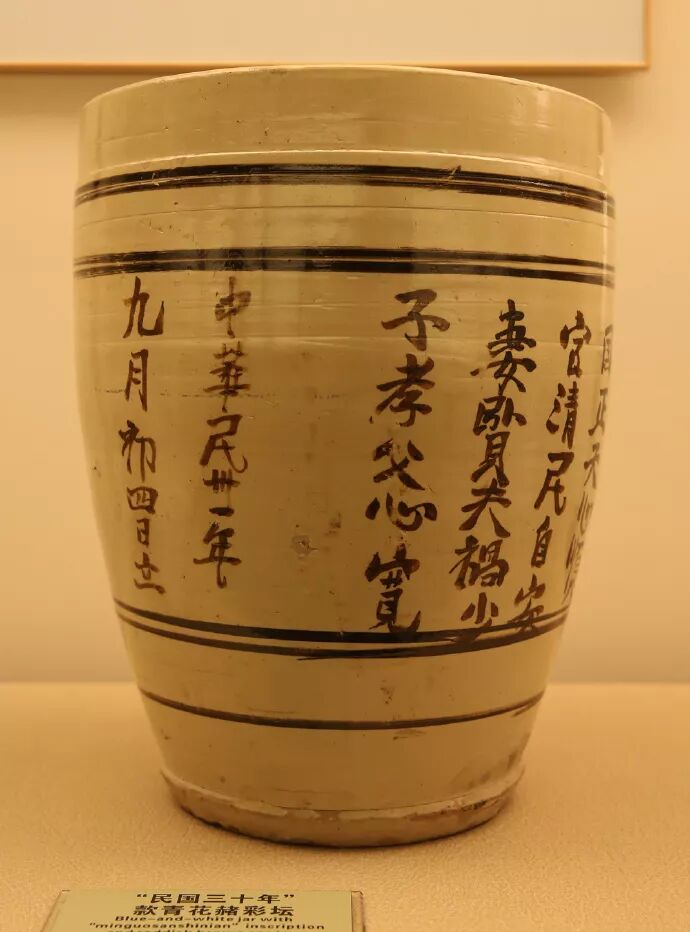 國正天心順
官清民自安
妻賢夫禍少
子孝父心寬
中華民卅一年
九月初四日立
“民国三十年”
款青花赭彩坛
Blue-and-white jar with
"minguosanshinian" inscription